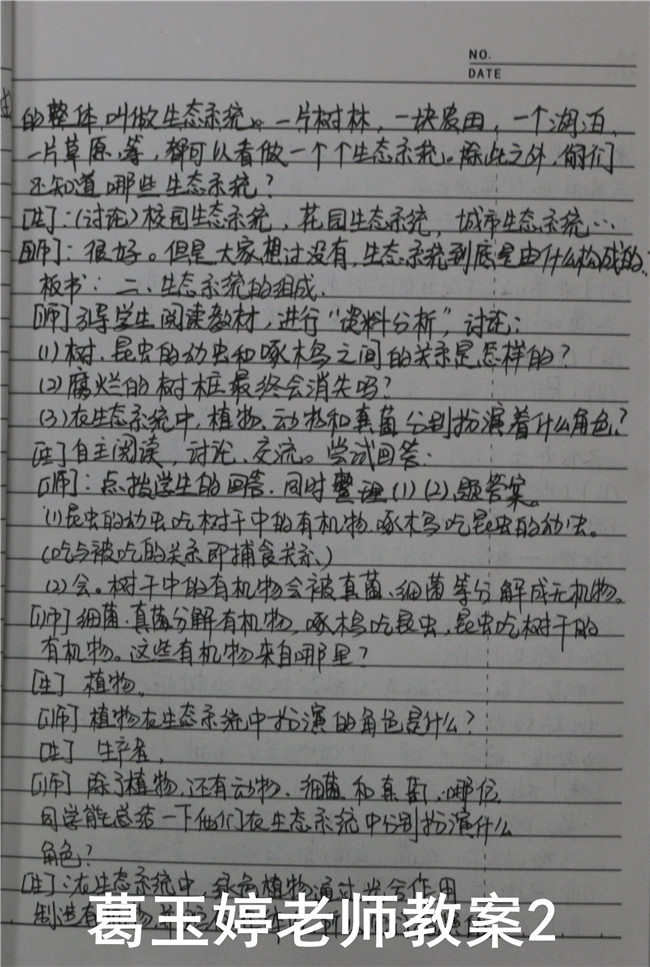 NO.
DATE
的整体,叫做生态系统。一片树林,一块农田,一个湖泊,
一片草原,等,都可以看做一个个生态系统。除此之外,你们
还知道哪些生态系统?
[生]:(讨论)校园生态系统,花园生态系统,城市生态系统…
[师]:很好。但是大家想过没有,生态系统到底是由什么构成的
板书:二、生态系统的组成.
[师]引导学生阅读教材,进行“资料分析”,讨论:
(1)树、昆虫的幼虫和啄木鸟之间的关系是怎样的?
(2)腐烂的树桩最终会消失吗?
(3)在生态系统中,植物、动物和真菌分别扮演着什么角色?
[生]自主阅读,讨论、交流。尝试回答:
[师]:点拨学生的回答.同时整理(1)(2)题答案。
(1)昆虫的幼虫吃树干中的有机物.啄木鸟吃昆虫的幼虫。
(吃与被吃的关系即捕食关系)
(2)会。树干中的有机物会被真菌、细菌等分解成无机物。
[师]细菌、真菌分解有机物,啄木鸟吃昆虫,昆虫吃树干的
有机物。这些有机物来自哪里?
[生]植物。
[师]植物在生态系统中扮演的角色是什么?
[生]生产者。
[师]除了植物,还有动物、细菌和真菌,哪位
同学能总结一下他们在生态系统中分别扮演什么
角色?
[生]:在生态系统中,绿色植物通过光合作用
制造有
葛玉婷老师教案2